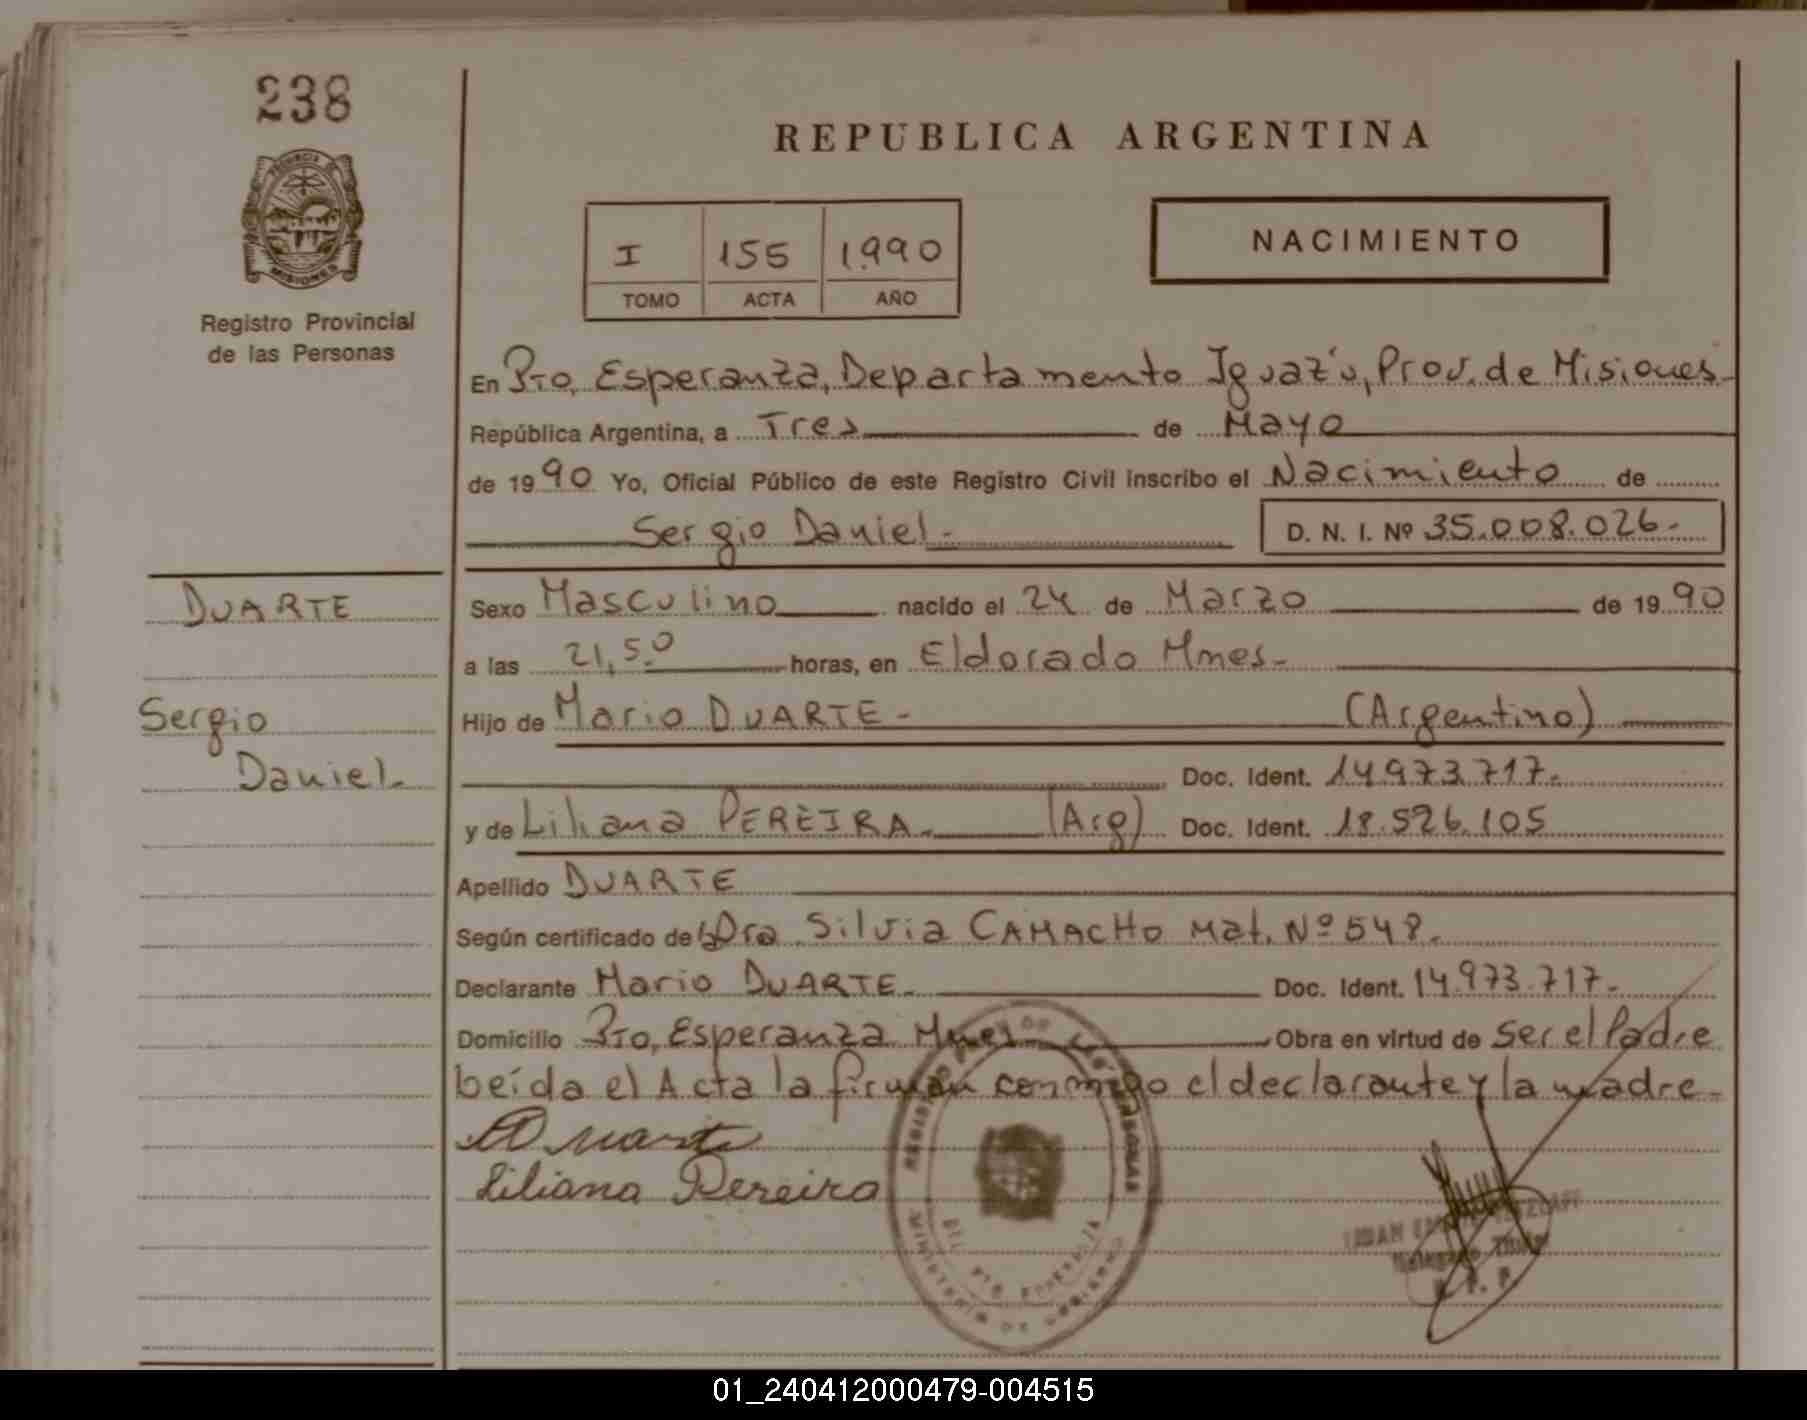 238
PROVINCIA DE
MISIONES
Registro Provincial
de las Personas
REPUBLICA ARGENTINA
I 155 1.990
TOMO ACTA AÑO
NACIMIENTO
En Pto. Esperanza, Departamento Iguazú, Prov. de Misiones-
República Argentina, a Tres de Mayo
de 1990 Yo, Oficial Público de este Registro Civil inscribo el Nacimiento de
Sergio Daniel.- D. N. I. Nº 35.008.026.-
DUARTE
Sergio
Daniel.-
Sexo Masculino nacido el 24 de Marzo de 1990
a las 21,50 horas, en Eldorado Mnes.-
Hijo de Mario DUARTE.- (Argentino)
Doc. Ident. 14.973.717.-
y de Liliana PEREIRA.- (Arg) Doc. Ident. 18.526.105
Apellido DUARTE
Según certificado de la Dra. Silvia CAMACHO Mat. Nº 548.-
Declarante Mario DUARTE.- Doc. Ident. 14.973.717.-
Domicilio Pto. Esperanza Mnes.- Obra en virtud de Ser el Padre
Leída el Acta la firman conmigo el declarante y la madre.-
Duarte
Liliana Pereira
REGISTRO PROV. DE LAS PERSONAS
MINISTERIO DE GOBIERNO
Titular
R. P. P.
01_240412000479-004515